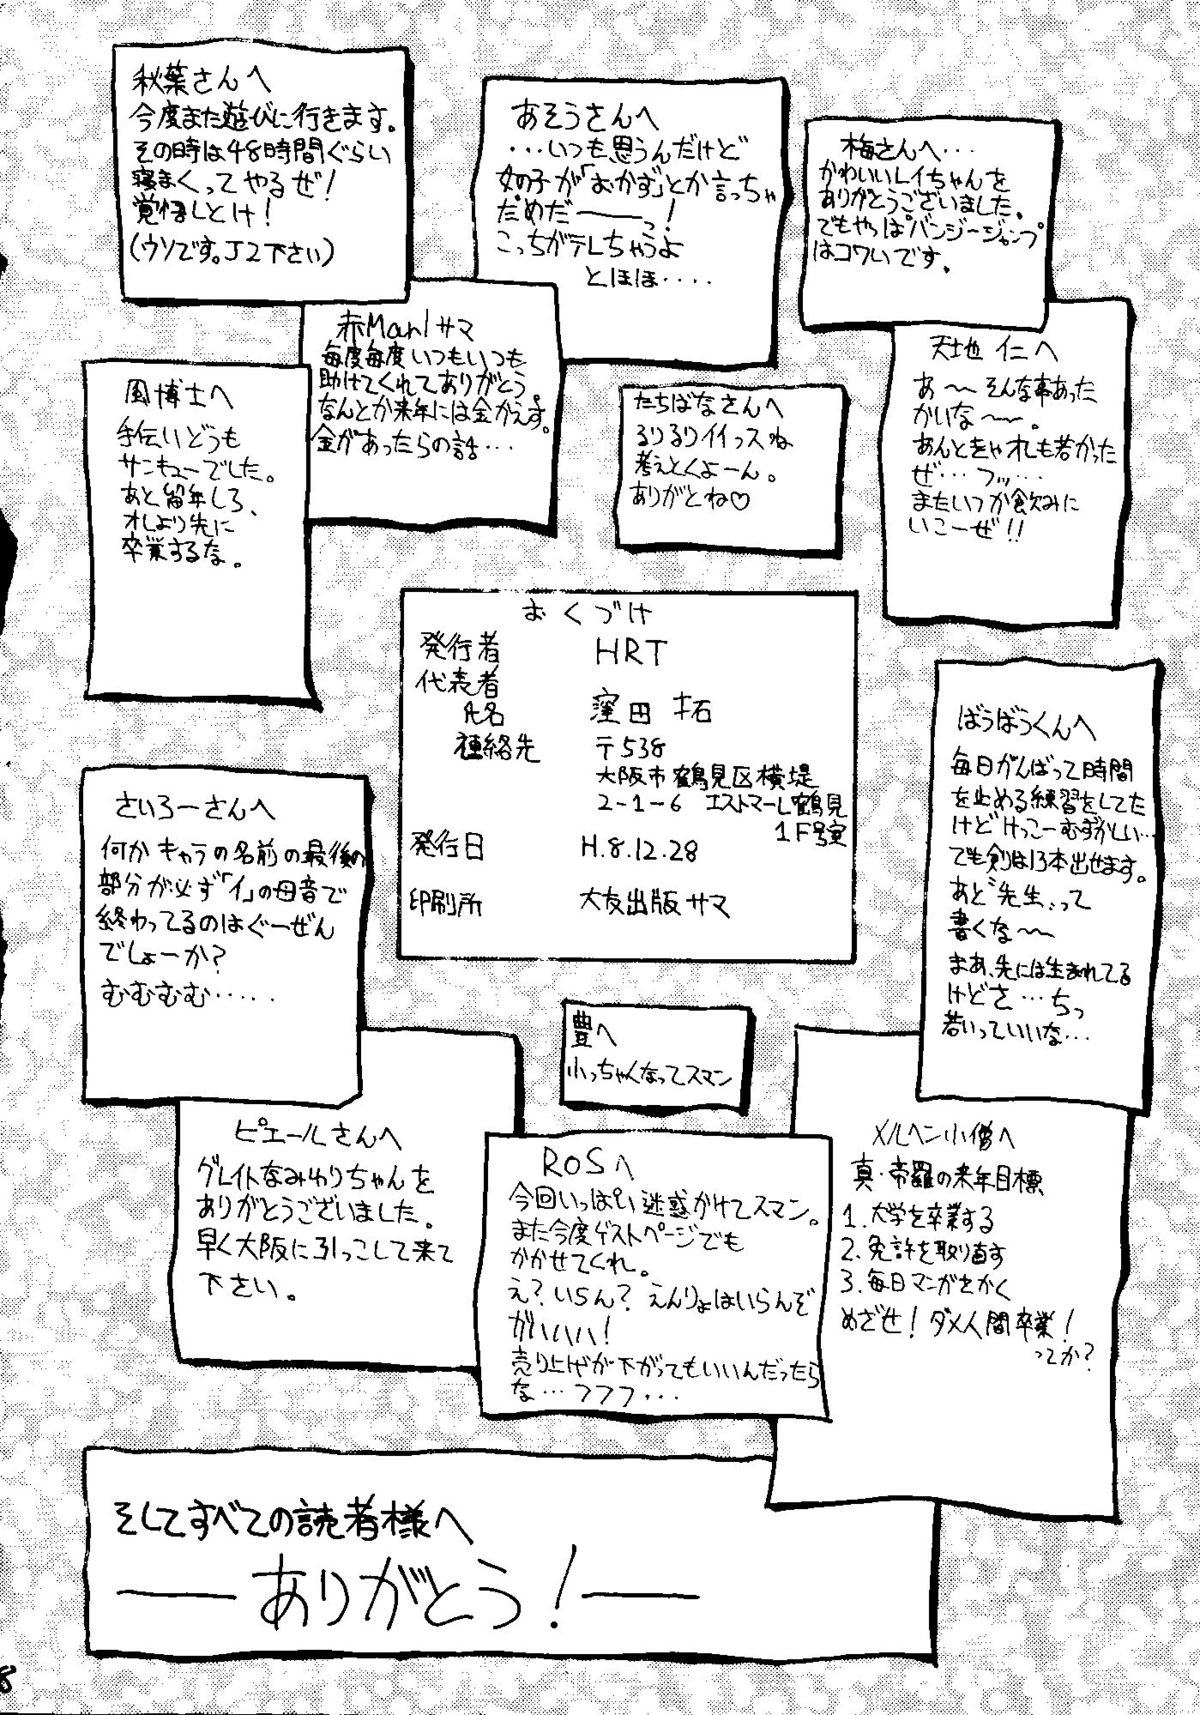 秋葉さんへ
今度また遊びに行きます。
その時は48時間ぐらい
寝まくってやるぜ!
覚悟しとけ!
(ウソです。J2下さい)
あそうさんへ
・・・いつも思うんだけど
女の子が「おかず」とか言っちゃ
だめだーーっ!
こっちがテレちゃうよ
とほほ・・・・
梅さんへ・・・
かわいいレイちゃんを
ありがとうございました。
でもやっぱバンジージャンプ
はコワいです。
赤Manlサマ
毎度毎度いつもいつも
助けてくれてありがとう。
なんとか来年には金かえす。
金があったらの話・・・
天地 仁へ
あ〜〜そんな事あった
かいな〜〜。
あんときゃオレも若かった
ぜ・・・フッ・・・
またいつか飲みに
いこーぜ!!
風博士へ
手伝いどうも
サンキューでした。
あと留年しろ、
オレより先に
卒業するな。
たちばなさんへ
るりるりイイっスね
考えとくよーん。
ありがとね♡
おくづけ
発行者 HRT
代表者
氏名 窪田 拓
連絡先 〒538
大阪市鶴見区横堤
2-1-6 エストマーレ鶴見
1F号室
発行日 H.8.12.28
印刷所 大友出版サマ
ばうばうくんへ
毎日がんばって時間
を止める練習をしてた
けどけっこーむずかしい・・・
でも剣は13本出せます。
あと〝先生〟って
書くな〜〜
まあ、先には生まれてる
けどさ・・・ちっ
若いっていいな・・・
さいろーさんへ
何かキャラの名前の最後の
部分が必ず「イ」の母音で
終わってるのはぐーぜん
でしょーか?
むむむむ・・・・・
豊へ
小っちゃくなってスマン
ピエールさんへ
グレイトなみゆりちゃんを
ありがとうございました。
早く大阪に引っこして来て
下さい。
ROSへ
今回いっぱい迷惑かけてスマン。
また今度ゲストページでも
かかせてくれ。
え?いらん?えんりょはいらんぞ
ガハハハ!
売り上げが下がってもいいんだったら
な・・・フフフ・・・
メルヘン小僧へ
真・帝羅の来年目標
1.大学を卒業する
2.免許を取り直す
3.毎日マンガをかく
めざせ!ダメ人間卒業!
ってか?
そしてすべての読者様へ
――ありがとう!――
8